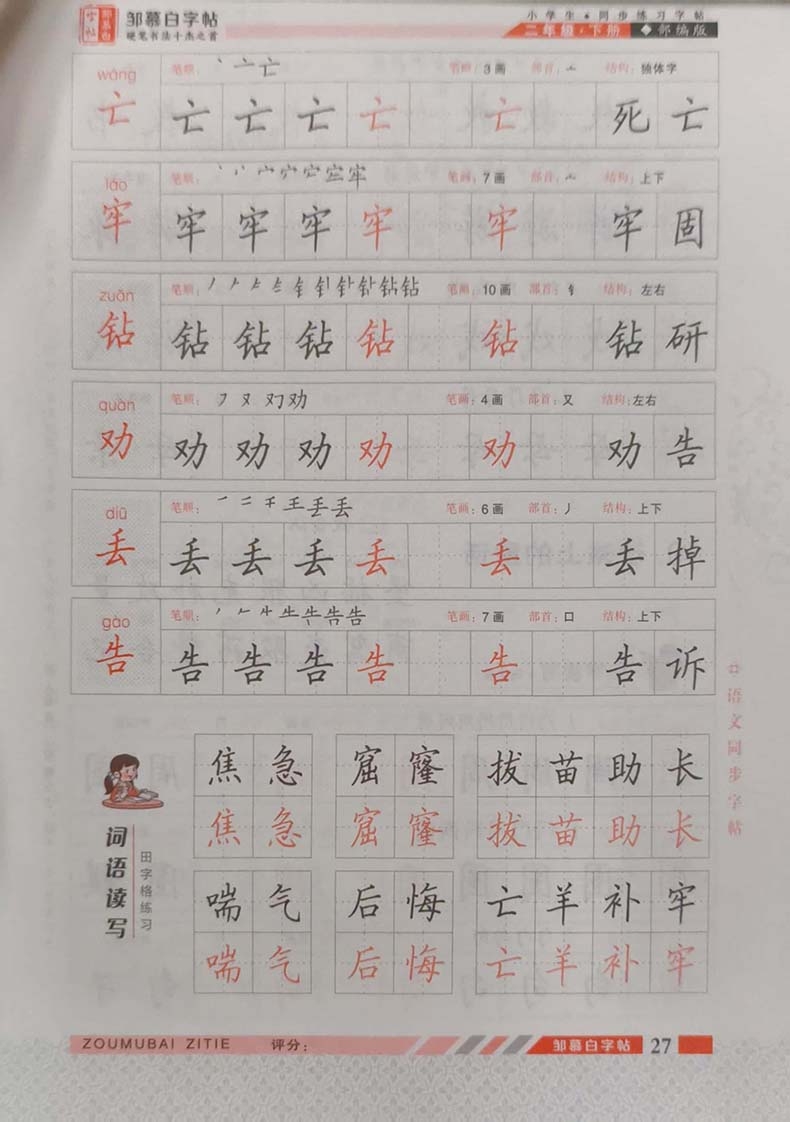 邹慕白字帖
邹慕白字帖
硬笔书法十杰之首
小学生·同步练习字帖
二年级·下册 ◆部编版
wáng 笔顺： 丶 亠 亡 笔画：3画 部首：亠 结构：独体字
亡 亡 亡 亡 亡 亡 死 亡
láo 笔顺： 笔画：7画 部首：宀 结构：上下
牢 牢 牢 牢 牢 牢 牢 固
zuān 笔顺： 笔画：10画 部首：钅 结构：左右
钻 钻 钻 钻 钻 钻 钻 研
quàn 笔顺： フ 又 劝 劝 笔画：4画 部首：又 结构：左右
劝 劝 劝 劝 劝 劝 劝 告
diū 笔顺： 一 二 千 王 丢 丢 笔画：6画 部首：丿 结构：上下
丢 丢 丢 丢 丢 丢 丢 掉
gào 笔顺： 笔画：7画 部首：口 结构：上下
告 告 告 告 告 告 告 诉
语文同步字帖
词语读写
田字格练习
焦急 窟窿 拔苗助长
焦急 窟窿 拔苗助长
喘气 后悔 亡羊补牢
喘气 后悔 亡羊补牢
ZOUMUBAI ZITIE 评分： 邹慕白字帖 27